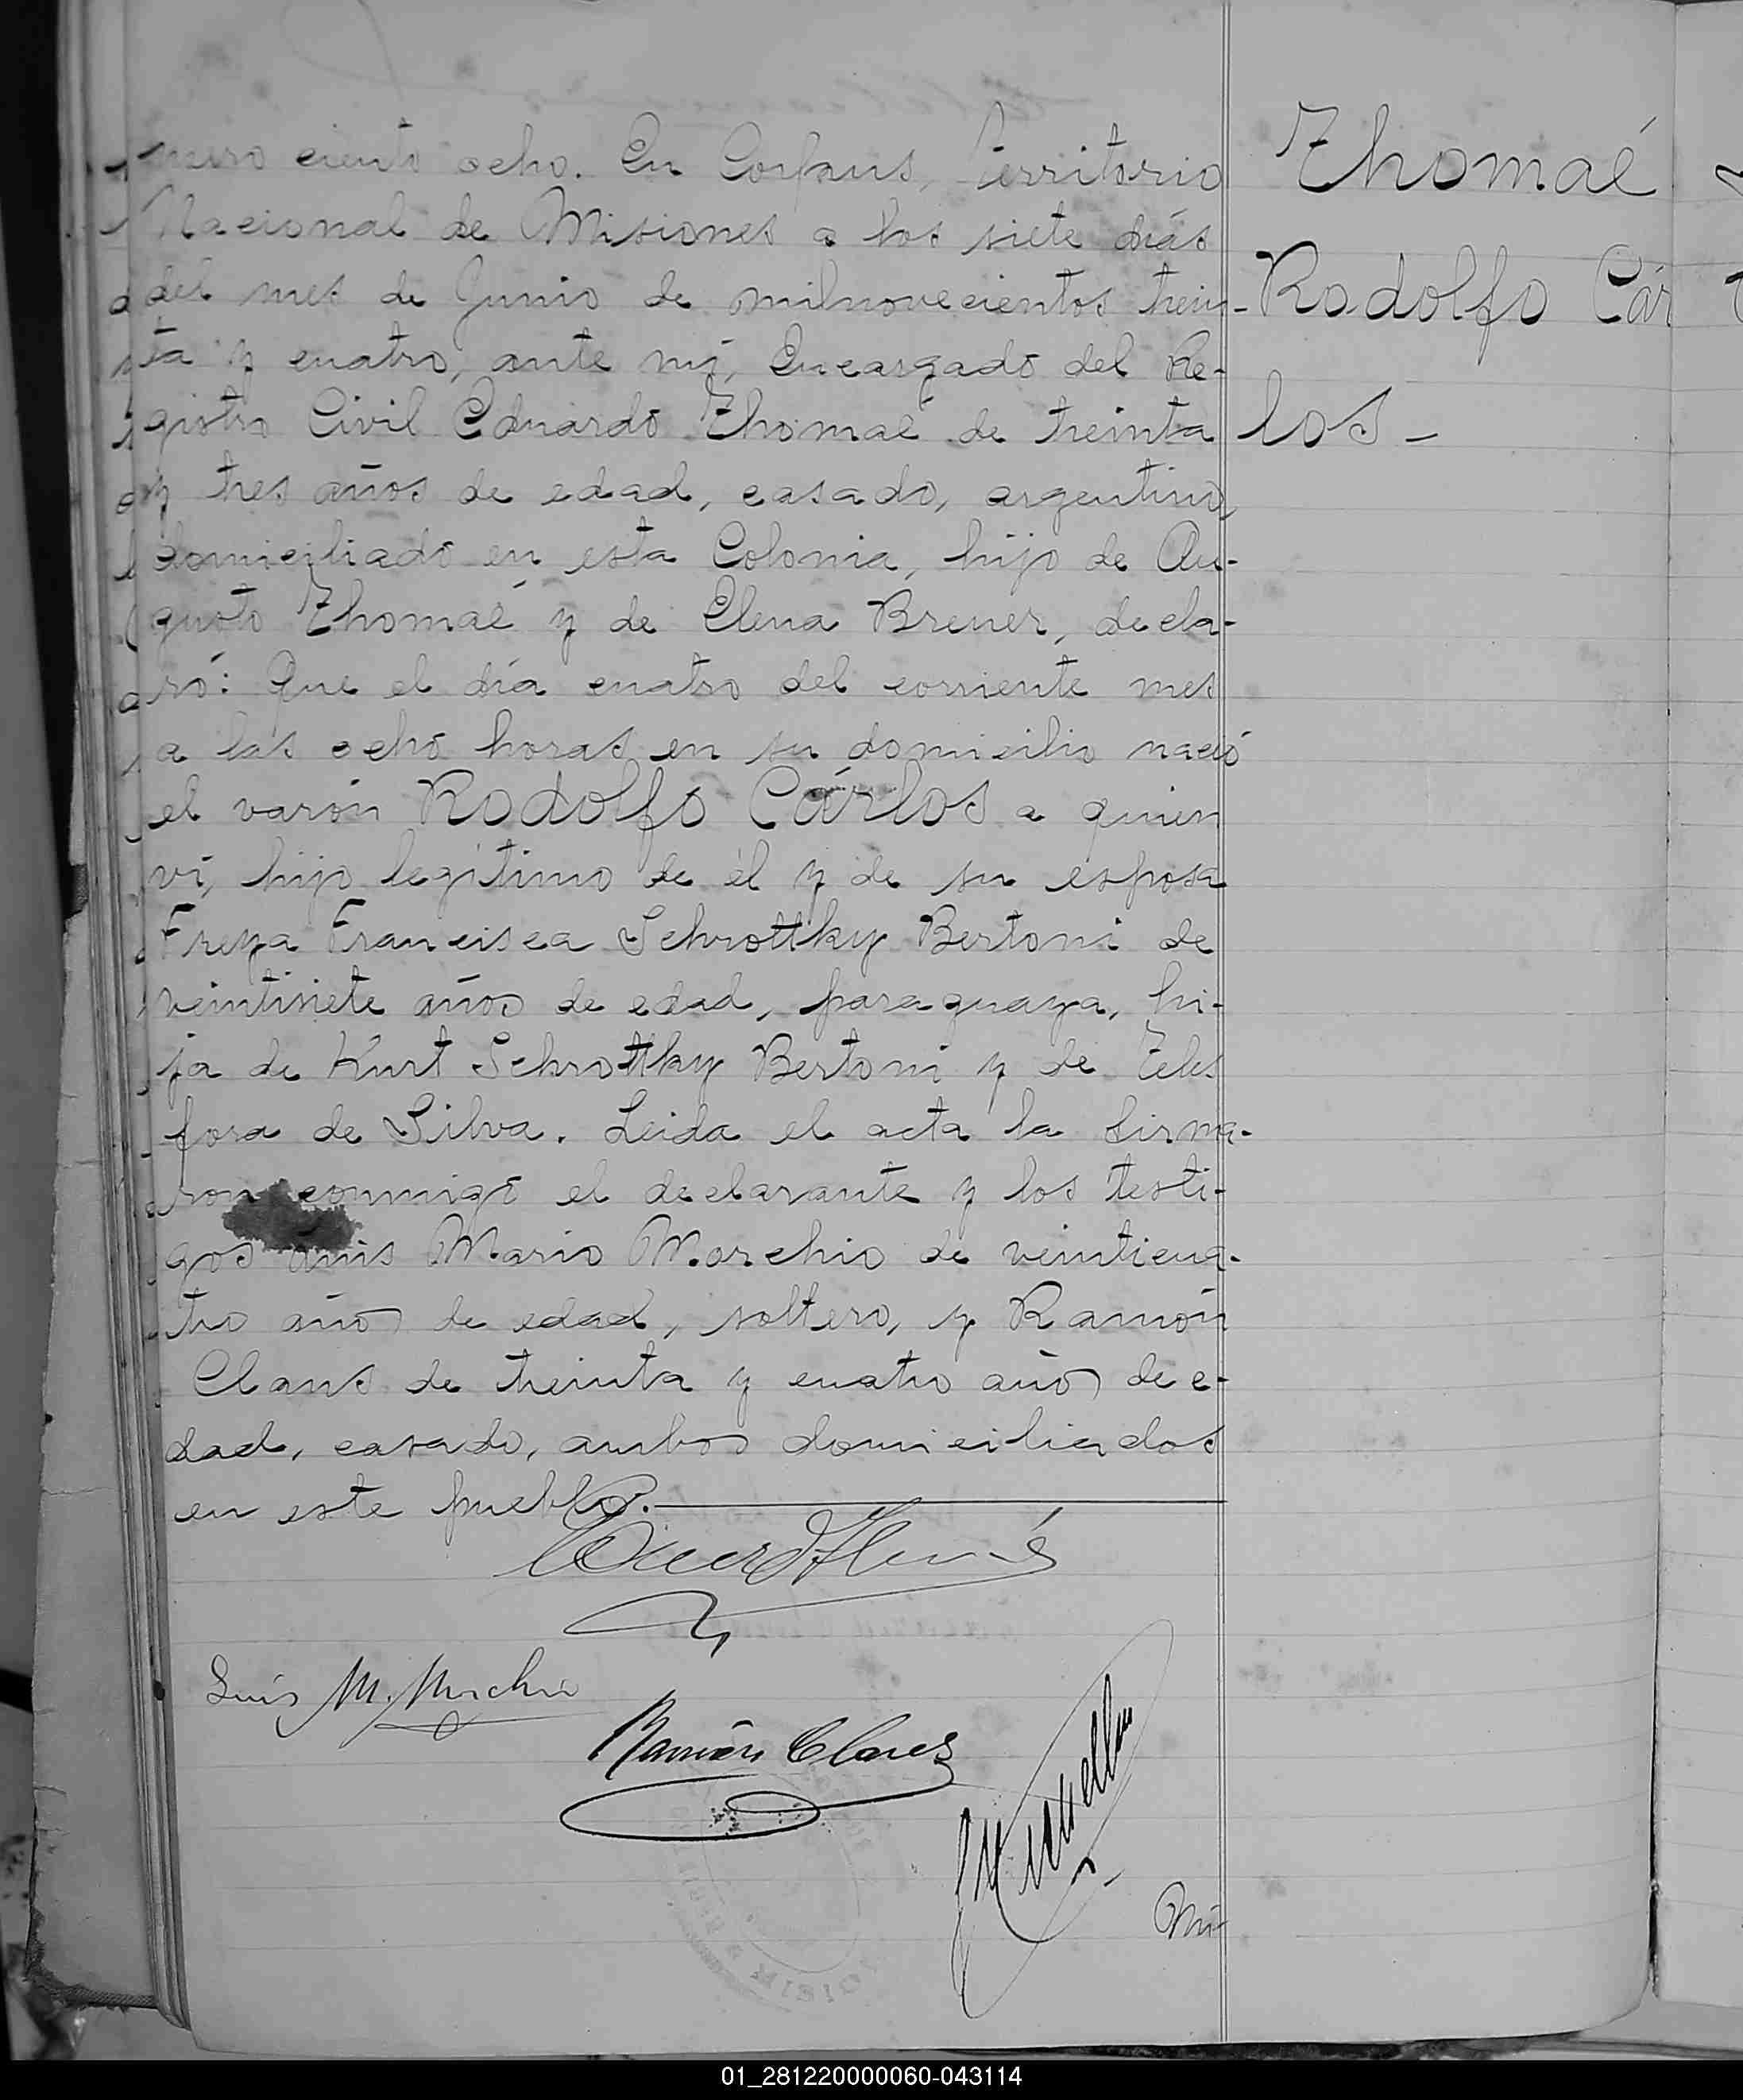 mero ciento ocho. En Corpus, Territorio
Nacional de Misiones a los siete días
del mes de Junio de milnovecientos trein-
ta y cuatro, ante mí, Encargado del Re-
gistro Civil Eduardo Thomaé de treinta
y tres años de edad, casado, argentino,
domiciliado en esta Colonia, hijo de Au-
gusto Thomaé y de Elena Brener, decla-
ró: Que el día cuatro del corriente mes
a las ocho horas en su domicilio nació
el varón Rodolfo Cárlos a quien
ví, hijo legítimo de él y de su esposa
Freya Francisca Schrottky Bertoni de
veintisiete años de edad, paraguaya, hi-
ja de Kurt Schrottky Bertoni y de Teles
fora de Silva. Leida el acta la firma-
ron conmigo el declarante y los testi-
gos Luis Mario Morchio de veinticua-
tro años de edad, soltero, y Ramón
Claus de treinta y cuatro años de e-
dad, casado, ambos domiciliados
en este pueblo.
Luis M. Morchio
Ramón Claus
Nú-
Thomaé
Rodolfo Cár
los-
01_281220000060-043114